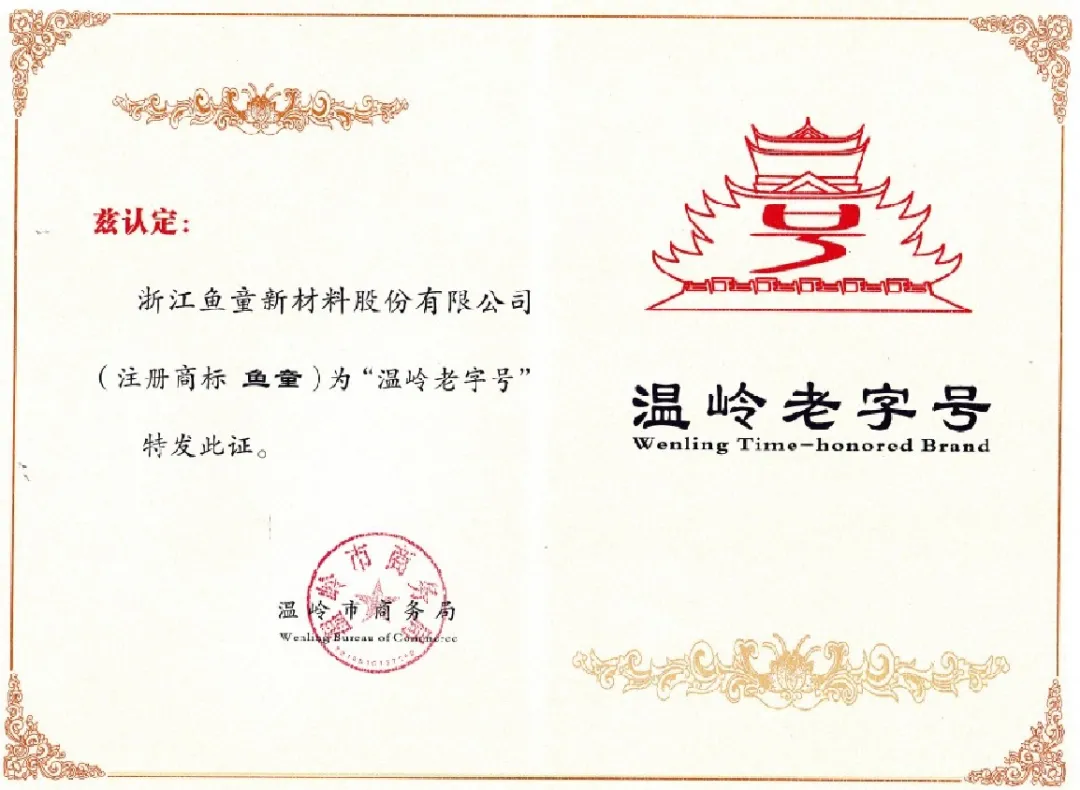 兹认定：
浙江鱼童新材料股份有限公司
（注册商标 鱼童）为“温岭老字号”
特发此证。
温岭市商务局
Wenling Bureau of Commerce
温岭市商务局
号
温岭老字号
Wenling Time-honored Brand